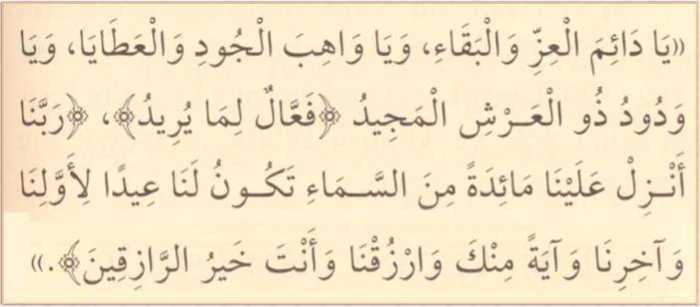 «يَا دَائِمَ الْعِزِّ وَالْبَقَاءِ، وَيَا وَاهِبَ الْجُودِ وَالْعَطَايَا، وَيَا
وَدُودُ ذُو الْعَـرْشِ الْمَجِيدُ ﴿فَعَّالٌ لِمَا يُرِيدُ﴾، ﴿رَبَّنَا
أَنْـزِلْ عَلَيْنَا مَائِدَةً مِنَ السَّـمَاءِ تَكُـونُ لَنَا عِيدًا لِأَوَّلِنَا
وَآخِرِنَا وَآيَةً مِنْكَ وَارْزُقْنَا وَأَنْتَ خَيْرُ الرَّازِقِينَ﴾.»